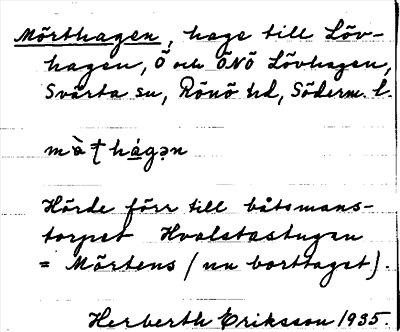 Mörthagen, hage till Löv-
hagen, Ö och ÖNÖ Lövhagen,
Svärta sn, Rönö hd, Söderm. l.
Hörde förr till båtsmans-
torpet Hvalstastugan
= Mörtens (nu borttaget).
Herberth Eriksson 1935.